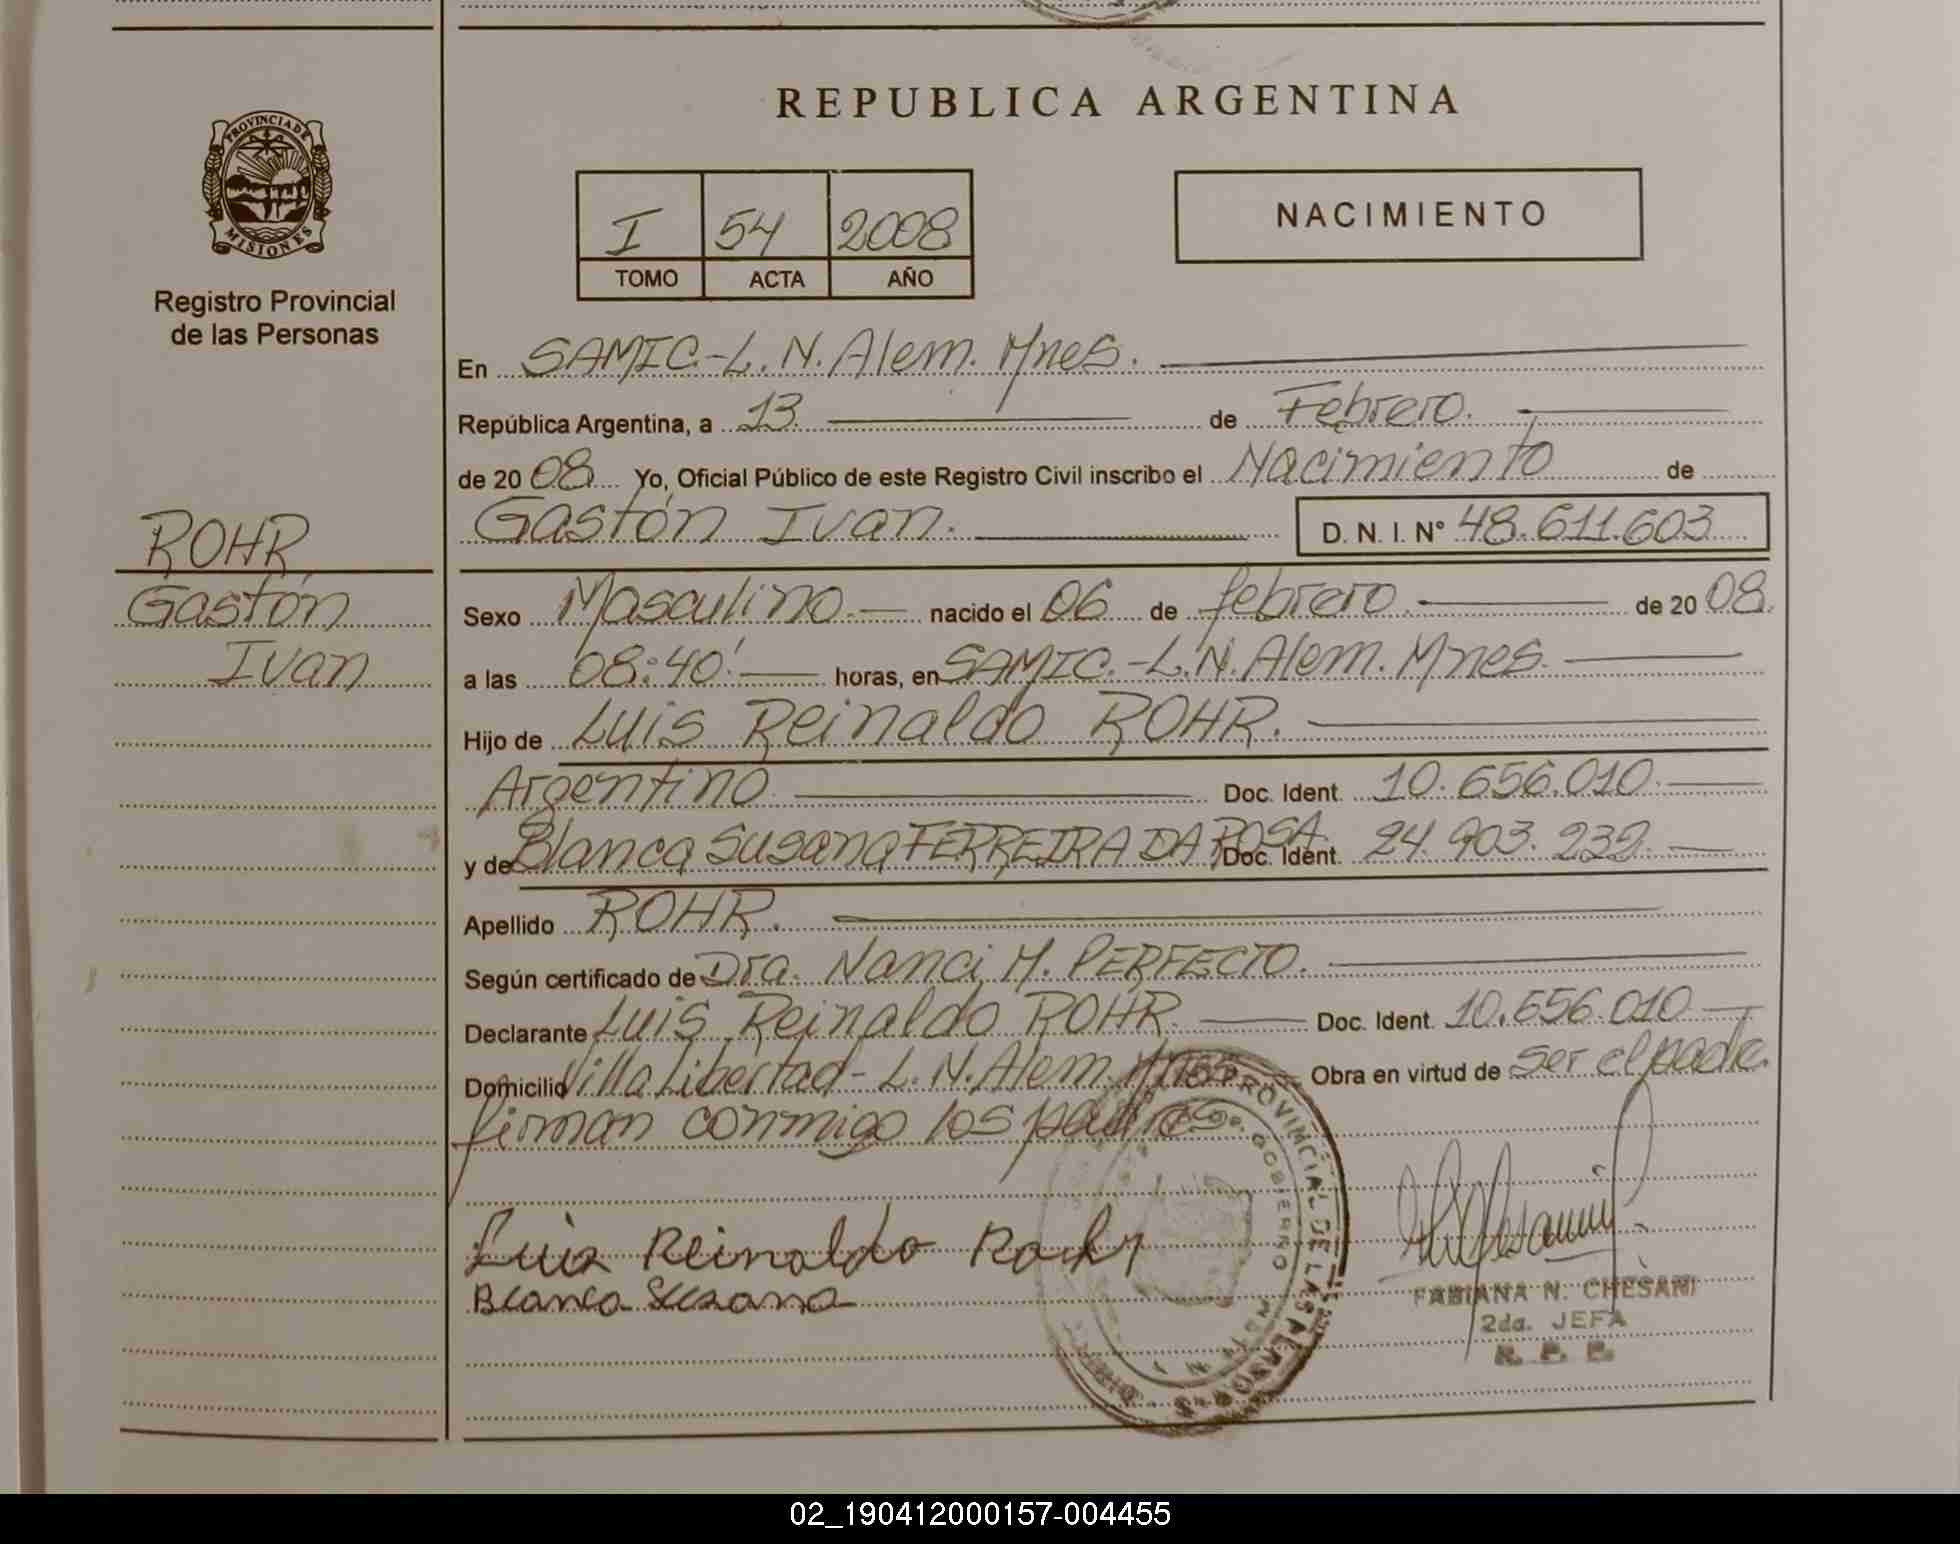 REPUBLICA ARGENTINA
PROVINCIA DE
MISIONES
Registro Provincial
de las Personas
I 54 2008
TOMO ACTA AÑO
NACIMIENTO
En SAMIC.-L.N.Alem.Mnes.
República Argentina, a 13 de Febrero.
de 2008 Yo, Oficial Público de este Registro Civil inscribo el Nacimiento de
Gastón Ivan. D. N. I. N° 48.611.603
ROHR
Gastón
Ivan
Sexo Masculino.- nacido el 06 de febrero. de 2008.
a las 08:40' horas, en SAMIC.-L.N.Alem.Mnes.
Hijo de Luis Reinaldo ROHR.
Argentino Doc. Ident. 10.656.010
y de Blanca Susana FERREIRA DA ROSA. Doc. Ident. 24.903.232
Apellido ROHR.
Según certificado de Dra. Nanci M. PERFECTO.
Declarante Luis Reinaldo ROHR. Doc. Ident. 10.656.010
Domicilio Villa Libertad-L.N.Alem.Mnes Obra en virtud de ser el padre.
firman conmigo los padres
Luis Reinaldo Rohr
Blanca Susana
PROVINCIAL DE LAS PERSONAS
GOBIERNO
FABIANA N. CHESANI
2da. JEFA
R. P. P.
02_190412000157-004455